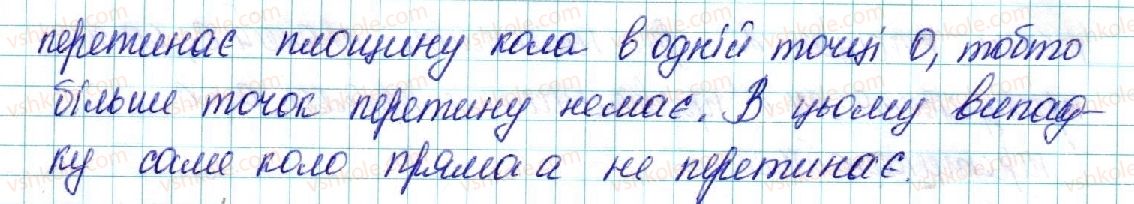 перетинає площину кола в одній точці О, тобто
більше точок перетину немає. В цьому випад-
ку саме коло пряма а не перетинає.